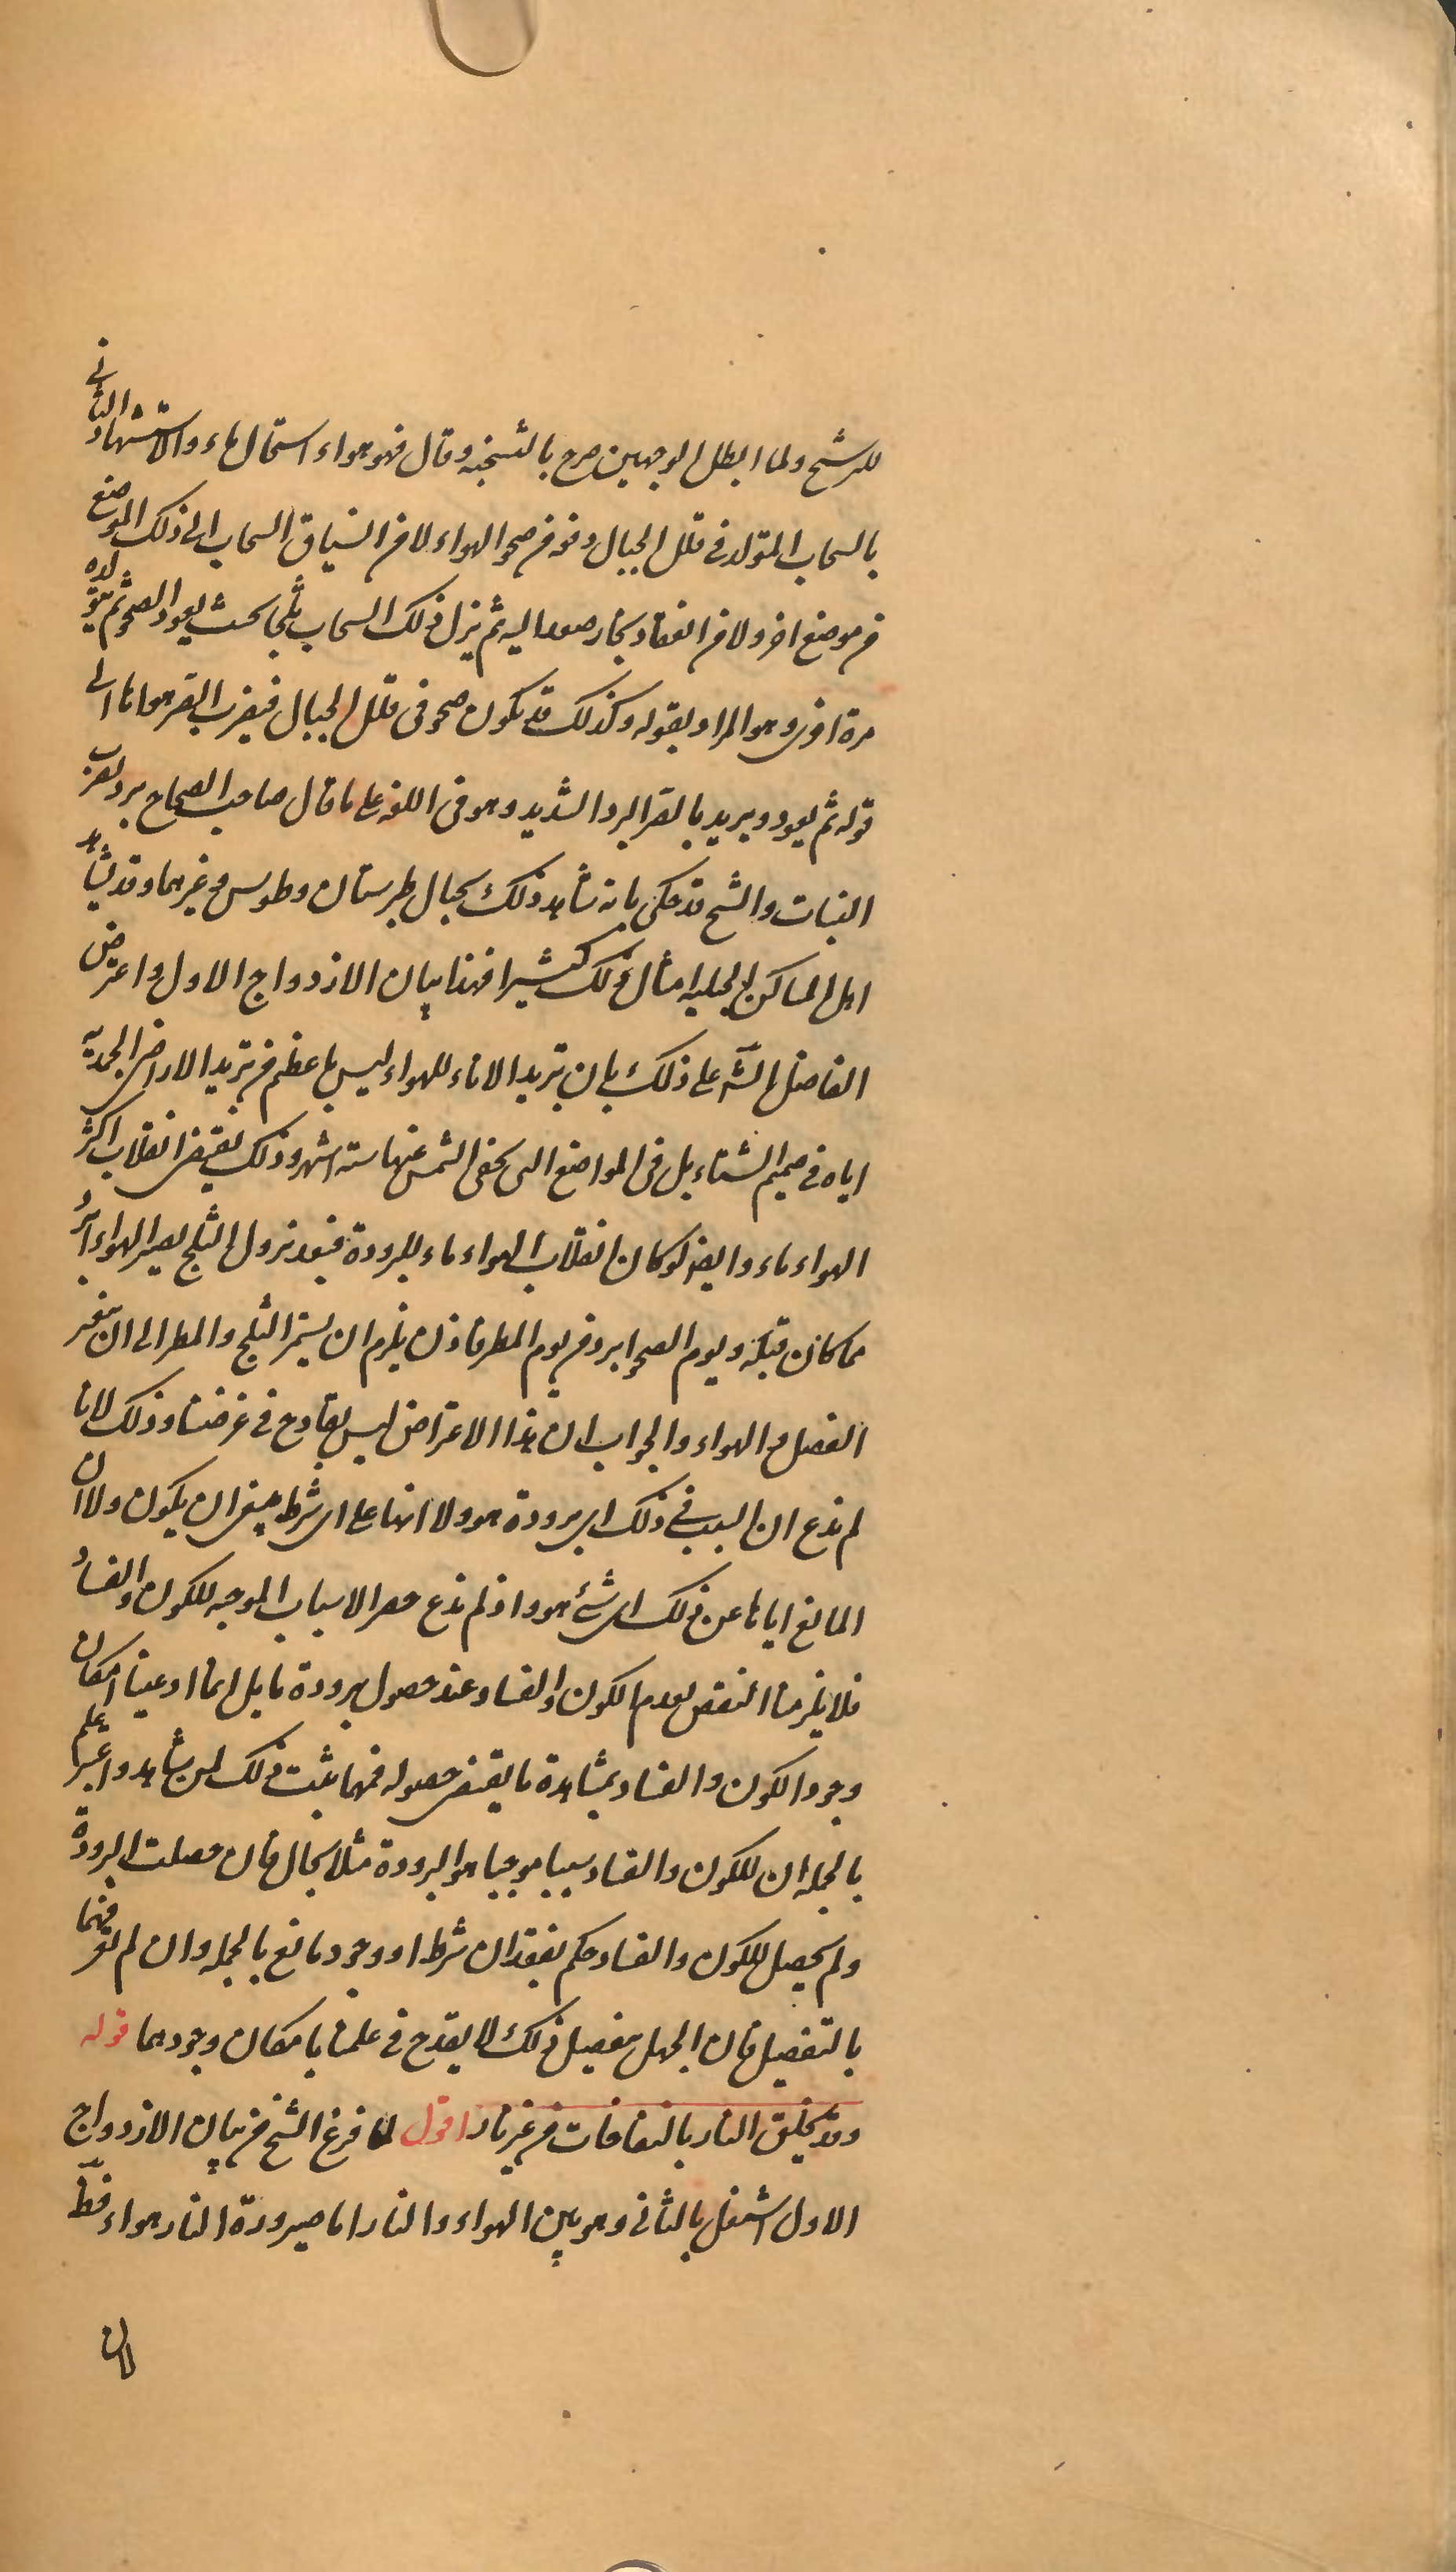 للرشح ولما ابطل الوجهين صرح بالنتيجة وقال فهو هواء استحال ماء والاستشهاد الثانى
بالسحاب المتولد فى قلل الجبال دفعة من صحو الهواء لا من انسياق السحاب الى ذلك الموضع
من موضع اخر ولا من انعقاد بخار صعد اليه ثم ينزل ذلك السحاب ثلجا بحيث يعود الصحو ثم يتولده
مرة اخرى وهو المراد بقوله وكذلك قد يكون صحو فى قلل الجبال فيضرب القر هواءها الى
قوله ثم يعود ويريد بالقر البرد الشديد وهو فى اللغة على ما قال صاحب الصحاح برد يضرب
النبات والشيخ قد حكى بانه شاهد ذلك بجبال طبرستان وطوس وغيرهما وقد يشاهد
اهل المساكن الجبلية امثال ذلك كثيرا فهذا بيان الازدواج الاول واعترض
الفاضل الشه على ذلك بان تبريد الاناء للهواء ليس باعظم من تبريد الاراضى الجمدية
اياه فى صميم الشتاء بل فى المواضع التى يخفى الشمس عنها ستة اشهر وذلك يقتضى انقلاب اكثر
الهواء ماء وايضا لو كان انقلاب الهواء ماء للبرودة فبعد نزول الثلج يصير الهواء ابرد
مما كان قبله ويوم الصحو ابرد من يوم المطر فاذن يلزم ان يستمر الثلج والمطر الى ان يتغير
الفصل والهواء والجواب ان هذا الاعتراض ليس بقادح فى غرضنا وذلك لانا
لم ندع ان السبب فى ذلك اى برودة هو ولا انها على اى شرط ينبغى ان يكون ولا ان
المانع اياها عن ذلك اى شئ هو واذ لم ندع حصر الاسباب الموجبة للكون والفساد
فلا يلزمنا النقض بعدم الكون والفساد عند حصول برودة ما بل انما ادعينا امكان
وجود الكون والفساد بمشاهدة ما يقتضى حصوله فمهما يثبت ذلك لمن شاهد واعتبر علم
بالجملة ان للكون والفساد سببا موجبا هو البرودة مثلا بحال فان حصلت البرودة
ولم يحصل للكون والفساد حكم بفقدان شرط او وجود مانع بالجملة وان لم نعرفهما
بالتفصيل فان الجهل بتفصيل ذلك لا يقدح فى علمنا بامكان وجودهما قوله
وقد يخلق النار بالنفاخات من غير نار اقول لما فرغ الشيخ من بيان الازدواج
الاول اشتغل بالثانى وهو بين الهواء والنار اما صيرورة النار هواء فظ
لان